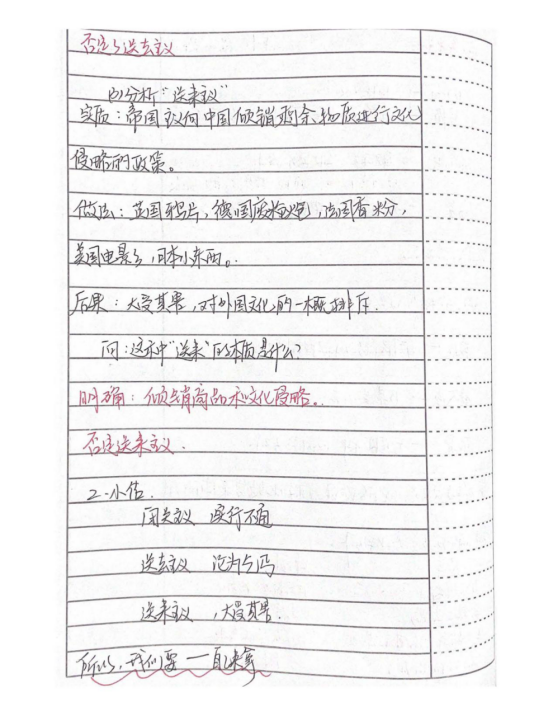 否定了送去主义
(3)分析"送来主义"
实质：帝国主义向中国倾销剩余物质进行文化
侵略的政策。
做法：英国鸦片，德国废枪炮，法国香粉，
美国电影，日本小东西。
后果：大受其害，对外国文化的一概排斥.
问：这种"送来"的本质是什么？
明确：倾销商品和文化侵略。
否定送来主义.
2.小结.
闭关主义 实行不通
送去主义 沦为乞丐
送来主义，大受其害.
所以，我们要一一自己来拿